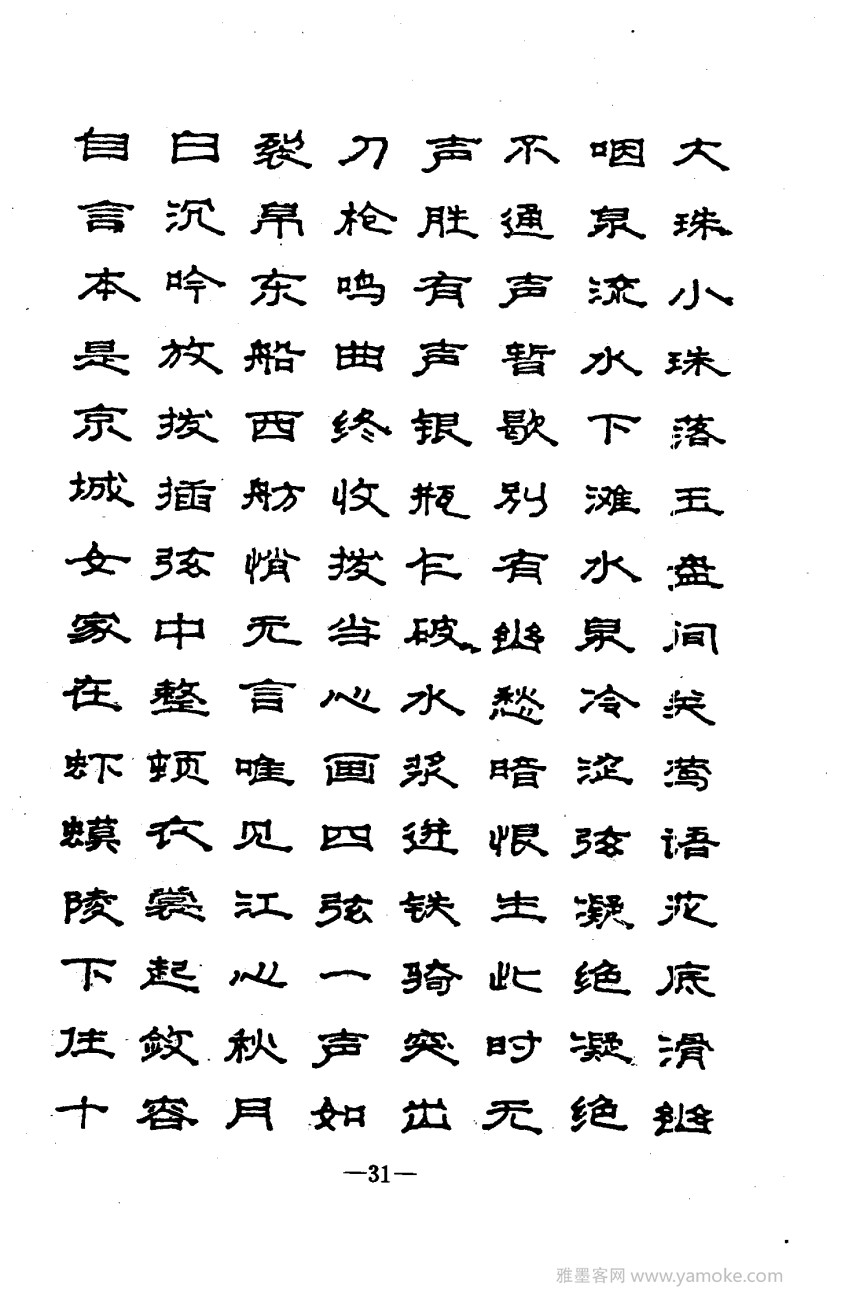 大珠小珠落玉盘间关莺语花底滑幽
咽泉流水下滩水泉冷涩弦凝绝凝绝
不通声暂歇别有幽愁暗恨生此时无
声胜有声银瓶乍破水浆迸铁骑突出
刀枪鸣曲终收拨当心画四弦一声如
裂帛东船西舫悄无言唯见江心秋月
白沉吟放拨插弦中整顿衣裳起敛容
自言本是京城女家在虾蟆陵下住十
—31—
雅墨客网 www.yamoke.com